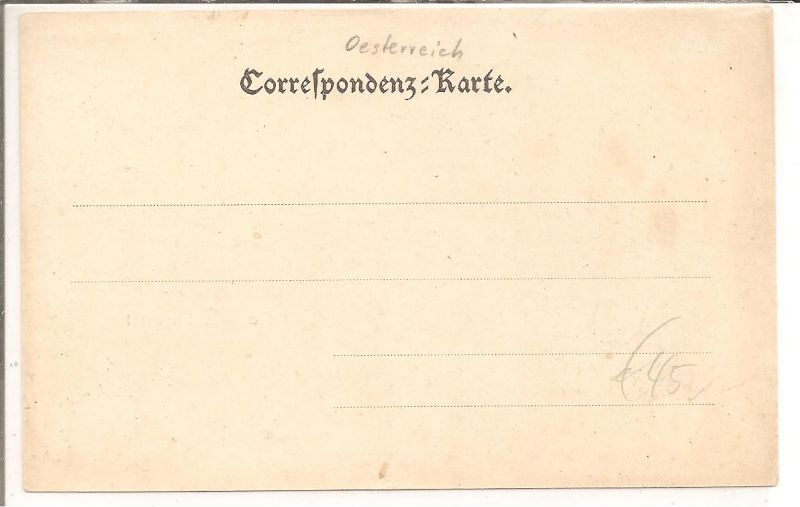 Oesterreich
Correſpondenz-Karte.
€ 45